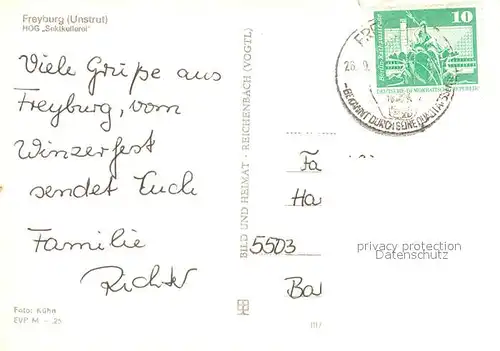 Freyburg (Unstrut)
HOG „Sektkellerei"
Viele Grüße aus
Freyburg, vom
Winzerfest
sendet Euch
Familie
Richter
Foto: Kühn
EVP M -,25
BILD UND HEIMAT · REICHENBACH (VOGTL)
10
DEUTSCHE DEMOKRATISCHE REPUBLIK
28.9.
-BEKANNT DURCH SEINE QUALITÄTS
Fa
Ha
5503
Ba
privacy protection
Datenschutz